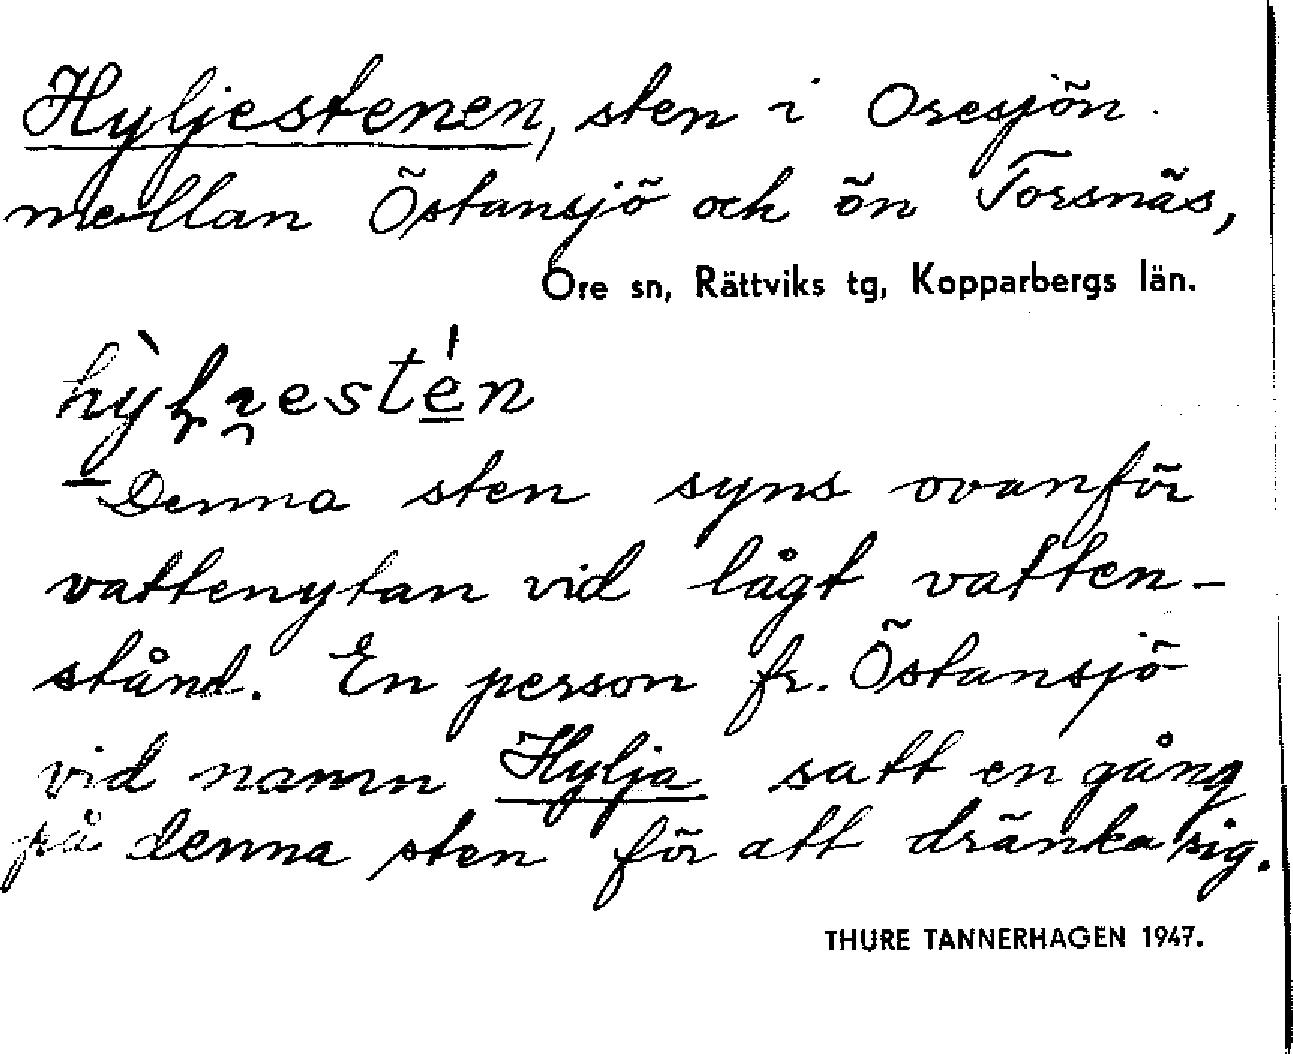 Hyljestenen, sten i Oresjön
mellan Östansjö och ön Torsnäs,
Ore sn, Rättviks tg, Kopparbergs län.
Denna sten syns ovanför
vattenytan vid lågt vatten-
stånd. En person fr. Östansjö
vid namn Hylja satt en gång
på denna sten för att dränka sig.
THURE TANNERHAGEN 1947.